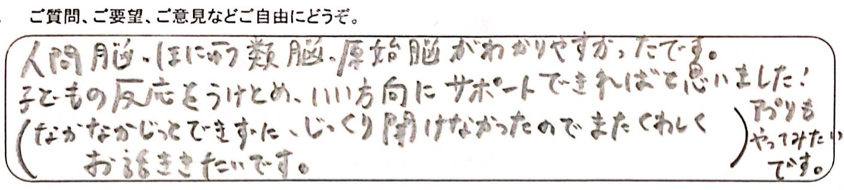 ご質問、ご要望、ご意見などご自由にどうぞ。
人間脳・ほにゅう類脳・原始脳がわかりやすかったです。
子どもの反応をうけとめ、いい方向にサポートできればと思いました!
(なかなかじっとできずに、じっくり聞けなかったのでまたくわしく
お話ききたいです。)
アプリも
やってみたい
です。